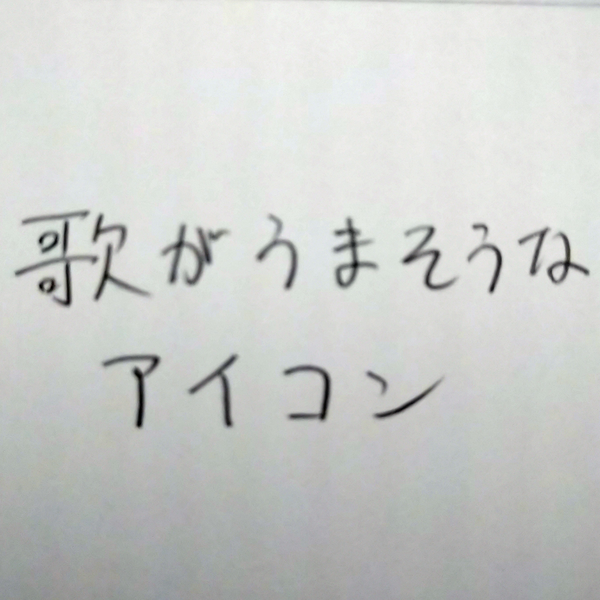 歌がうまそうな
アイコン